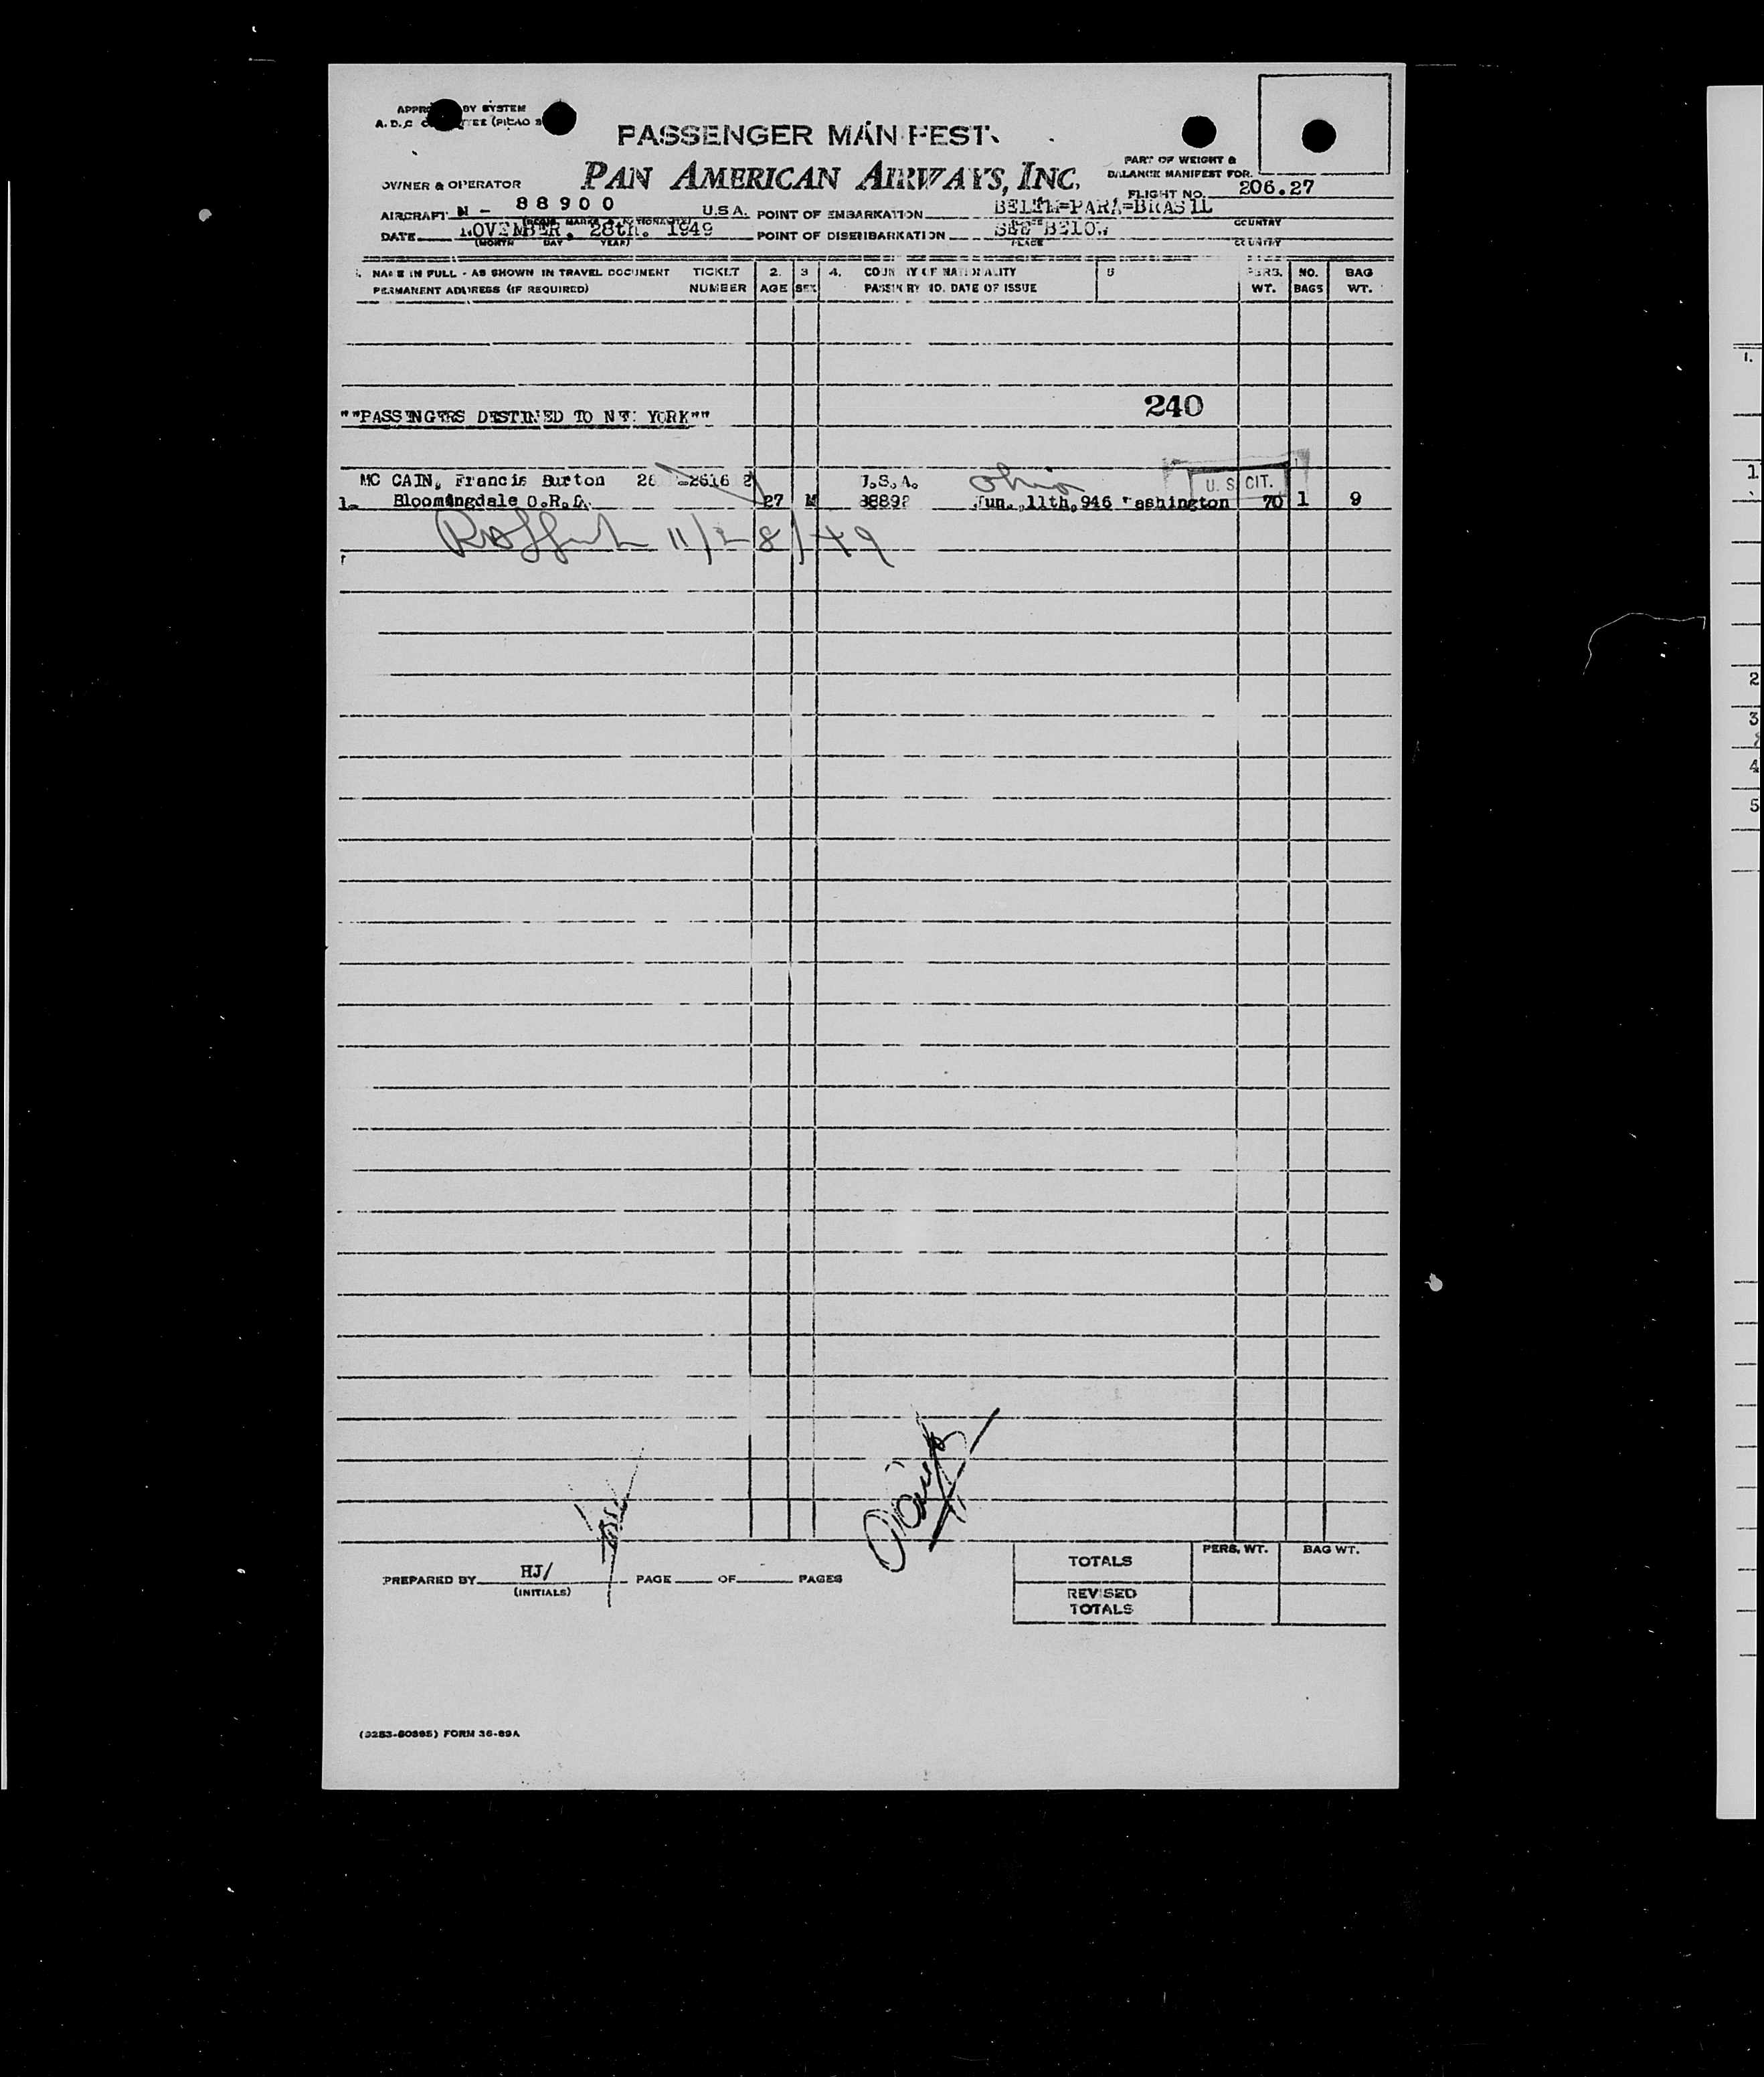 BY SYSTEM
A.D.C
PASSENGER MANIFEST
PAN AMERICAN AIRWAYS, INC.
PART OF WEIGHT &
BALANCE MANIFEST FOR
FLIGHT NO. 206.27
OWNER & OPERATOR
AIRCRAFT N - 88900 U.S.A. POINT OF EMBARKATION BELEM=PARA=BRASIL
COUNTRY
DATE NOVEMBER, 28th. 1949 POINT OF DISEMBARKATION SEE BELOW
(MONTH DAY YEAR) PLACE COUNTRY
NAME IN FULL - AS SHOWN IN TRAVEL DOCUMENT TICKET 2. 3 4. COUNTRY OF NATIONALITY 5 PERS. NO. BAG
PERMANENT ADDRESS (IF REQUIRED) NUMBER AGE SEX PASSPORT NO. DATE OF ISSUE WT. BAGS WT.
240
""PASSENGERS DESTINED TO NEW YORK""
MC CAIN, Francis Burton 28 -2616 2 U.S.A. Ohio U.S. CIT.
1- Bloomingdale O.R.D. 27 M 38892 Jun. 11th, 946 Washington 70 1 9
11/28/49
PERS. WT. BAG WT.
TOTALS
PREPARED BY HJ/ PAGE OF PAGES
(INITIALS)
REVISED
TOTALS
FORM 36-89A
1.
1
2
3
4
5